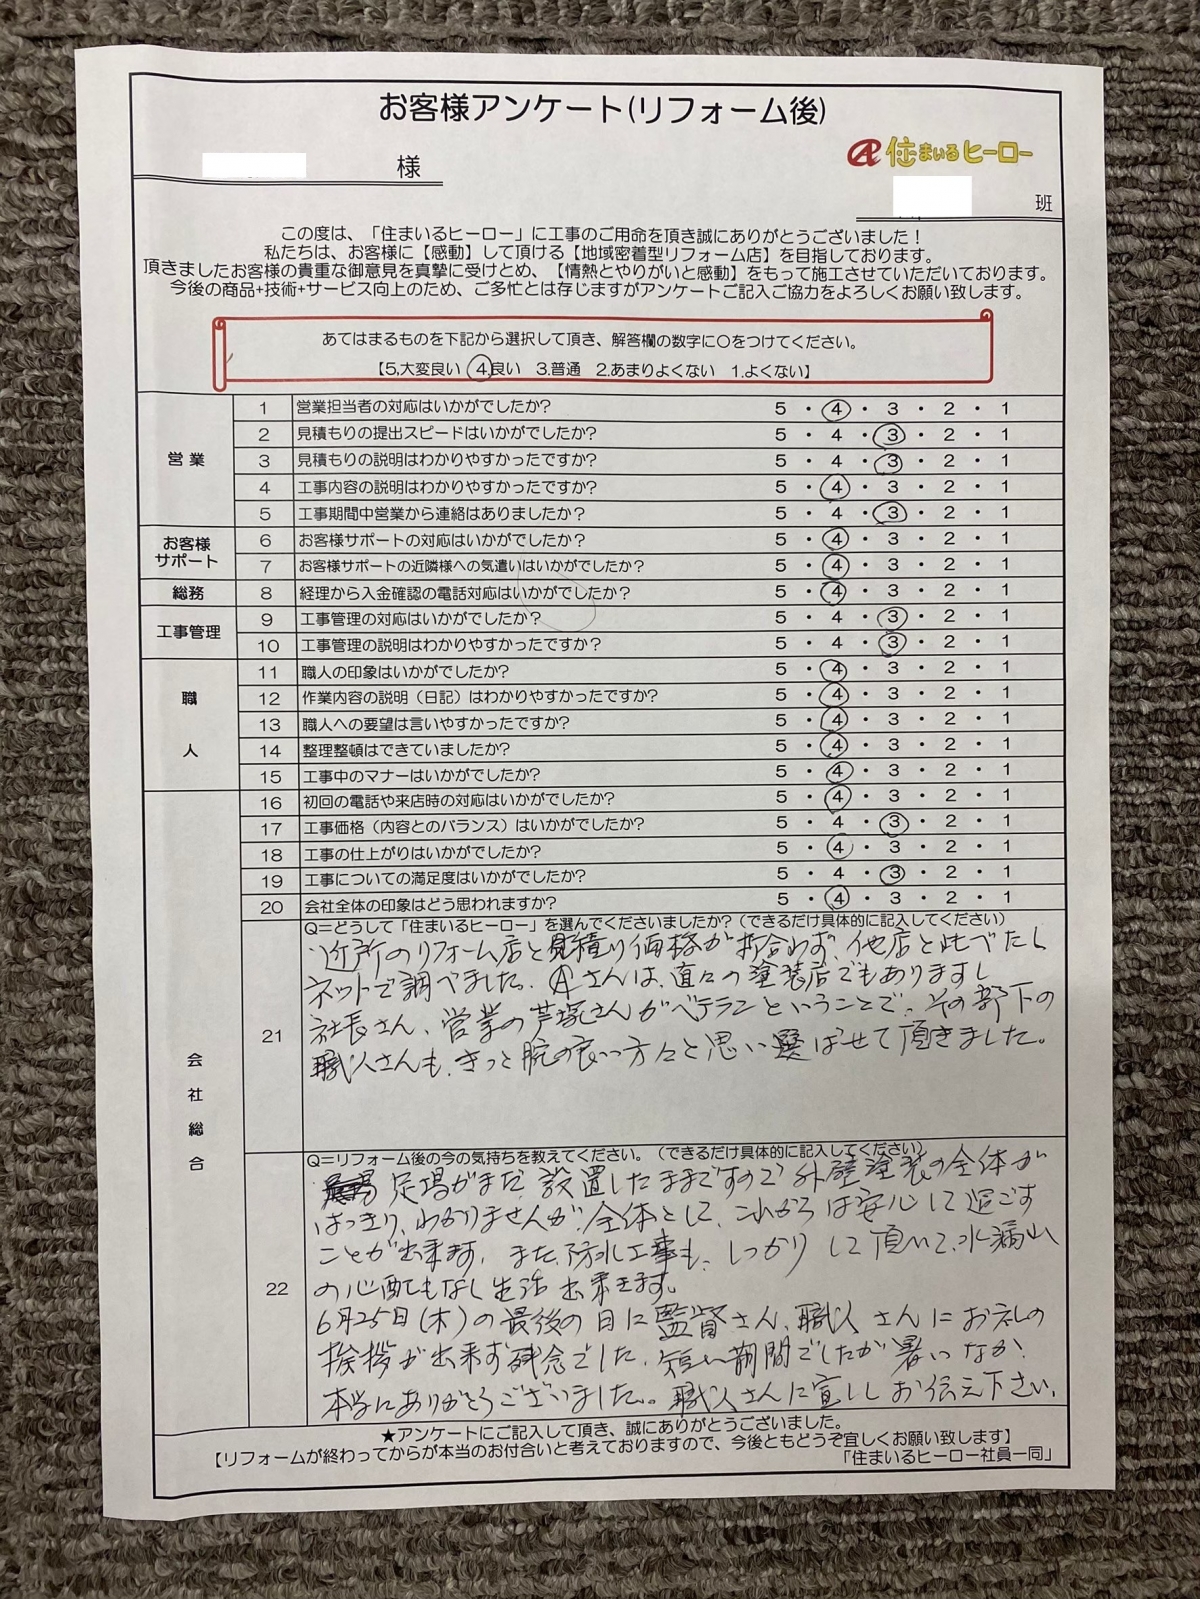 お客様アンケート(リフォーム後)
様
住まいるヒーロー
班
この度は、「住まいるヒーロー」に工事のご用命を頂き誠にありがとうございました！
私たちは、お客様に【感動】して頂ける【地域密着型リフォーム店】を目指しております。
頂きましたお客様の貴重な御意見を真摯に受けとめ、【情熱とやりがいと感動】をもって施工させていただいております。
今後の商品+技術+サービス向上のため、ご多忙とは存じますがアンケートご記入ご協力をよろしくお願い致します。
あてはまるものを下記から選択して頂き、解答欄の数字に〇をつけてください。
【5.大変良い 4良い 3.普通 2.あまりよくない 1.よくない】
営業
1 営業担当者の対応はいかがでしたか? 5・4・3・2・1
2 見積もりの提出スピードはいかがでしたか? 5・4・3・2・1
3 見積もりの説明はわかりやすかったですか? 5・4・3・2・1
4 工事内容の説明はわかりやすかったですか? 5・4・3・2・1
5 工事期間中営業から連絡はありましたか? 5・4・3・2・1
お客様
サポート
6 お客様サポートの対応はいかがでしたか? 5・4・3・2・1
7 お客様サポートの近隣様への気遣いはいかがでしたか? 5・4・3・2・1
総務
8 経理から入金確認の電話対応はいかがでしたか? 5・4・3・2・1
工事管理
9 工事管理の対応はいかがでしたか? 5・4・3・2・1
10 工事管理の説明はわかりやすかったですか? 5・4・3・2・1
職人
11 職人の印象はいかがでしたか? 5・4・3・2・1
12 作業内容の説明（日記）はわかりやすかったですか? 5・4・3・2・1
13 職人への要望は言いやすかったですか? 5・4・3・2・1
14 整理整頓はできていましたか? 5・4・3・2・1
15 工事中のマナーはいかがでしたか? 5・4・3・2・1
会社総合
16 初回の電話や来店時の対応はいかがでしたか? 5・4・3・2・1
17 工事価格（内容とのバランス）はいかがでしたか? 5・4・3・2・1
18 工事の仕上がりはいかがでしたか? 5・4・3・2・1
19 工事についての満足度はいかがでしたか? 5・4・3・2・1
20 会社全体の印象はどう思われますか? 5・4・3・2・1
21
Q=どうして「住まいるヒーロー」を選んでくださいましたか?（できるだけ具体的に記入してください）
近所のリフォーム店と見積り価格が折合わず、他店と比べたし
ネットで調べました。Aさんは、直々の塗装店でもありますし
社長さん、営業の芦塚さんがベテランということで、その部下の
職人さんも、きっと腕の良い方々と思い選ばせて頂きました。
22
Q=リフォーム後の今の気持ちを教えてください。（できるだけ具体的に記入してください）
足場がまだ設置したままですので外壁塗装の全体が
はっきり、わかりませんが、全体として、これからは安心して過ごす
ことが出来ます。また、防水工事も、しっかりして頂いて、水漏れ
の心配もなし生活出来ます。
6月25日(木)の最後の日に監督さん、職人さんにお礼の
挨拶が出来ず残念でした。短い期間でしたが暑いなか、
本当にありがとうございました。職人さんに宜しくお伝え下さい。
★アンケートにご記入して頂き、誠にありがとうございました。
【リフォームが終わってからが本当のお付合いと考えておりますので、今後ともどうぞ宜しくお願い致します】
「住まいるヒーロー社員一同」